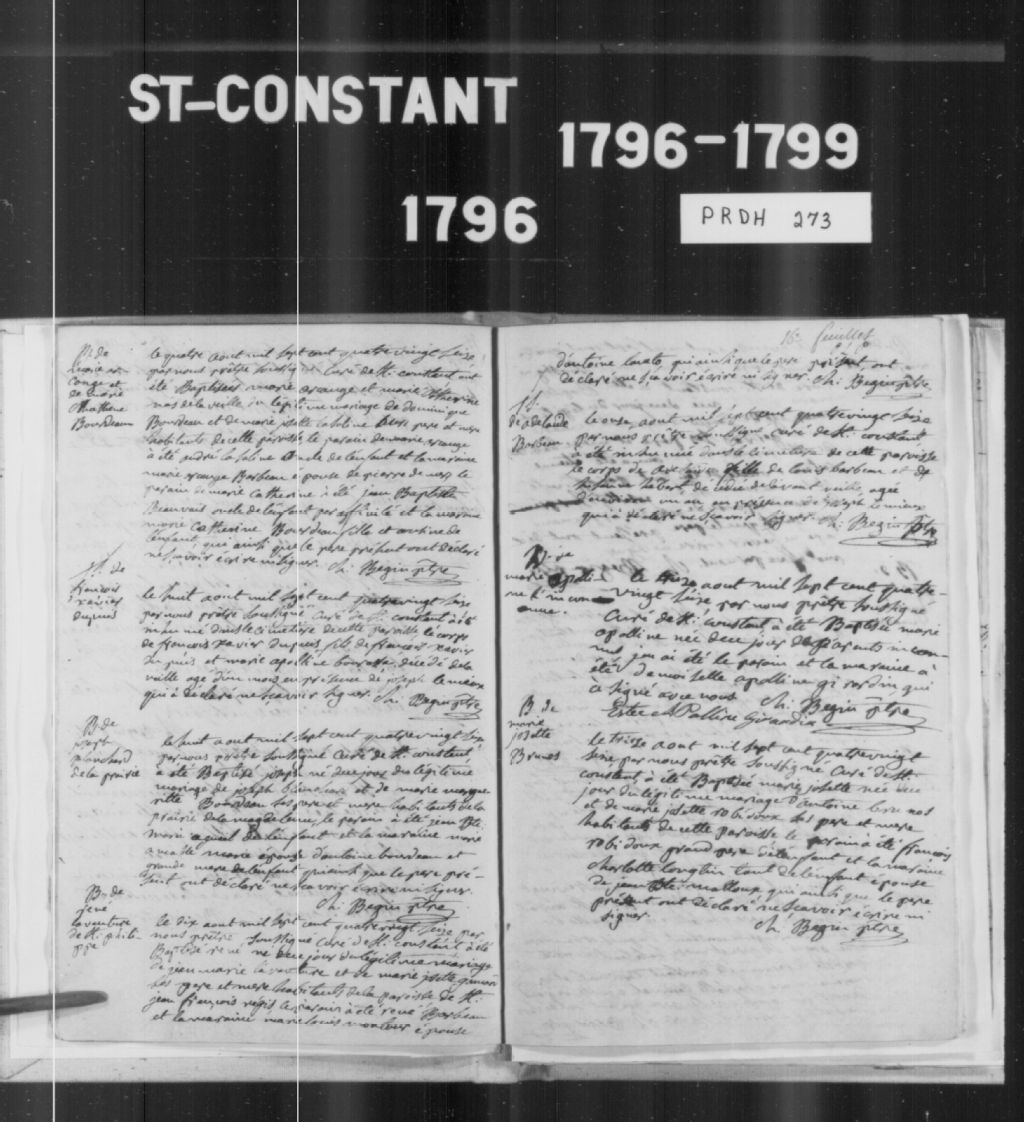 ST-CONSTANT
1796-1799
1796
PRDH 273
B. de
marie
ange et
de marie
Catherine
Bourdeau
le quatre aout mil sept cent quatre vingt seize
par nous prêtre soussigné Curé de St. constant ont
été Baptisées marie ange et marie Catherine
nées de la veille du légitime mariage de dominique
Bourdeau et de marie lasaline leurs pere et mere
habitants de cette paroisse le parain de marie ange
a été andré lasaline oncle de l'enfant et la maraine
marie Barbeau épouse de pierre
parain de marie Catherine a été jean Baptiste
Beauvais oncle de l'enfant par affinité et la maraine
marie Catherine Bourdeau fille et cousine de
l'enfant, qui ainsi que le pere présent ont déclaré
ne scavoir écrire ni signer. Ch. Begin ptre
S. de
françois
xavier
dupuis
le huit aout mil sept cent quatre vingt seize
par nous prêtre soussigné Curé de St. constant a été
inhumé dans le cimetiere de cette paroisse le corps
de françois xavier dupuis fils de françois xavier
dupuis et marie apolline bourassa, décédé de la
veille agé d'un mois en présence de joseph lemieux
qui a déclaré ne scavoir signer. Ch. Begin ptre
B. de
joseph
blanchard
de la prairie
le huit aout mil sept cent quatre vingt seize
par nous prêtre soussigné Curé de St. constant,
a été Baptisé joseph né de ce jour du légitime
mariage de joseph blanchard et de marie marguerite
Bourdeau ses pere et mere habitants de la
prairie de la magdelaine, le parain a été jean Bte
marie de l'enfant et la maraine marie
épouse d'antoine bourdeau et
grande mere de l'enfant qui ainsi que le pere pré-
sent ont déclaré ne scavoir écrire ni signer.
Ch. Begin ptre
B. de
rené
laventure
de St. phili-
ppe
le dix aout mil sept cent quatre vingt seize par
nous prêtre soussigné Curé de St. constant a été
Baptisé rené né de ce jour du légitime mariage
de jean marie laventure et de marie josette
ses pere et mere habitants de la paroisse de St.
jean françois regis le parain a été rené Barbeau
et la maraine marie louis épouse
16e feuillet
d'antoine qui ainsi que le pere présent, ont
déclaré ne scavoir écrire ni signer. Ch. Begin ptre
S.
de adelaide
Barbeau
le onze, aout mil sept cent quatre vingt seize
par nous prêtre soussigné curé de St. constant
a été inhumé dans le cimetiere de cette paroisse
le corps de adelaide fille de louis barbeau et de
hebert, décédée de avant veille, agée
d'environ un an en présence de joseph lemieux
qui a déclaré ne scavoir signer. Ch. Begin ptre
B. de
marie apolli-
ne d'incon-
nue.
le treize aout mil sept cent quatre-
vingt seize, par nous prêtre soussigné
Curé de St. constant a été Baptisée marie
apolline née de ce jour de parents incon-
nus, qui a été le parain et la maraine a
été demoiselle apolline girardin qui
a signé avec nous Ch. Begin ptre
Ester A Polline Girardin
B de
marie
josette
Brunos
le treize aout mil sept cent quatre vingt
seize par nous prêtre soussigné Curé de St.
constant a été Baptisée marie josette née de ce
jour du légitime mariage d'antoine brunos
et de marie josette robidoux ses pere et mere
habitants de cette paroisse le parain a été françois
robidoux grand pere de l'enfant et la maraine
charlotte longtin tante de l'enfant épouse
de jean Bte mailloux qui ainsi que le pere
présent ont déclaré ne scavoir écrire ni
signer. Ch. Begin ptre